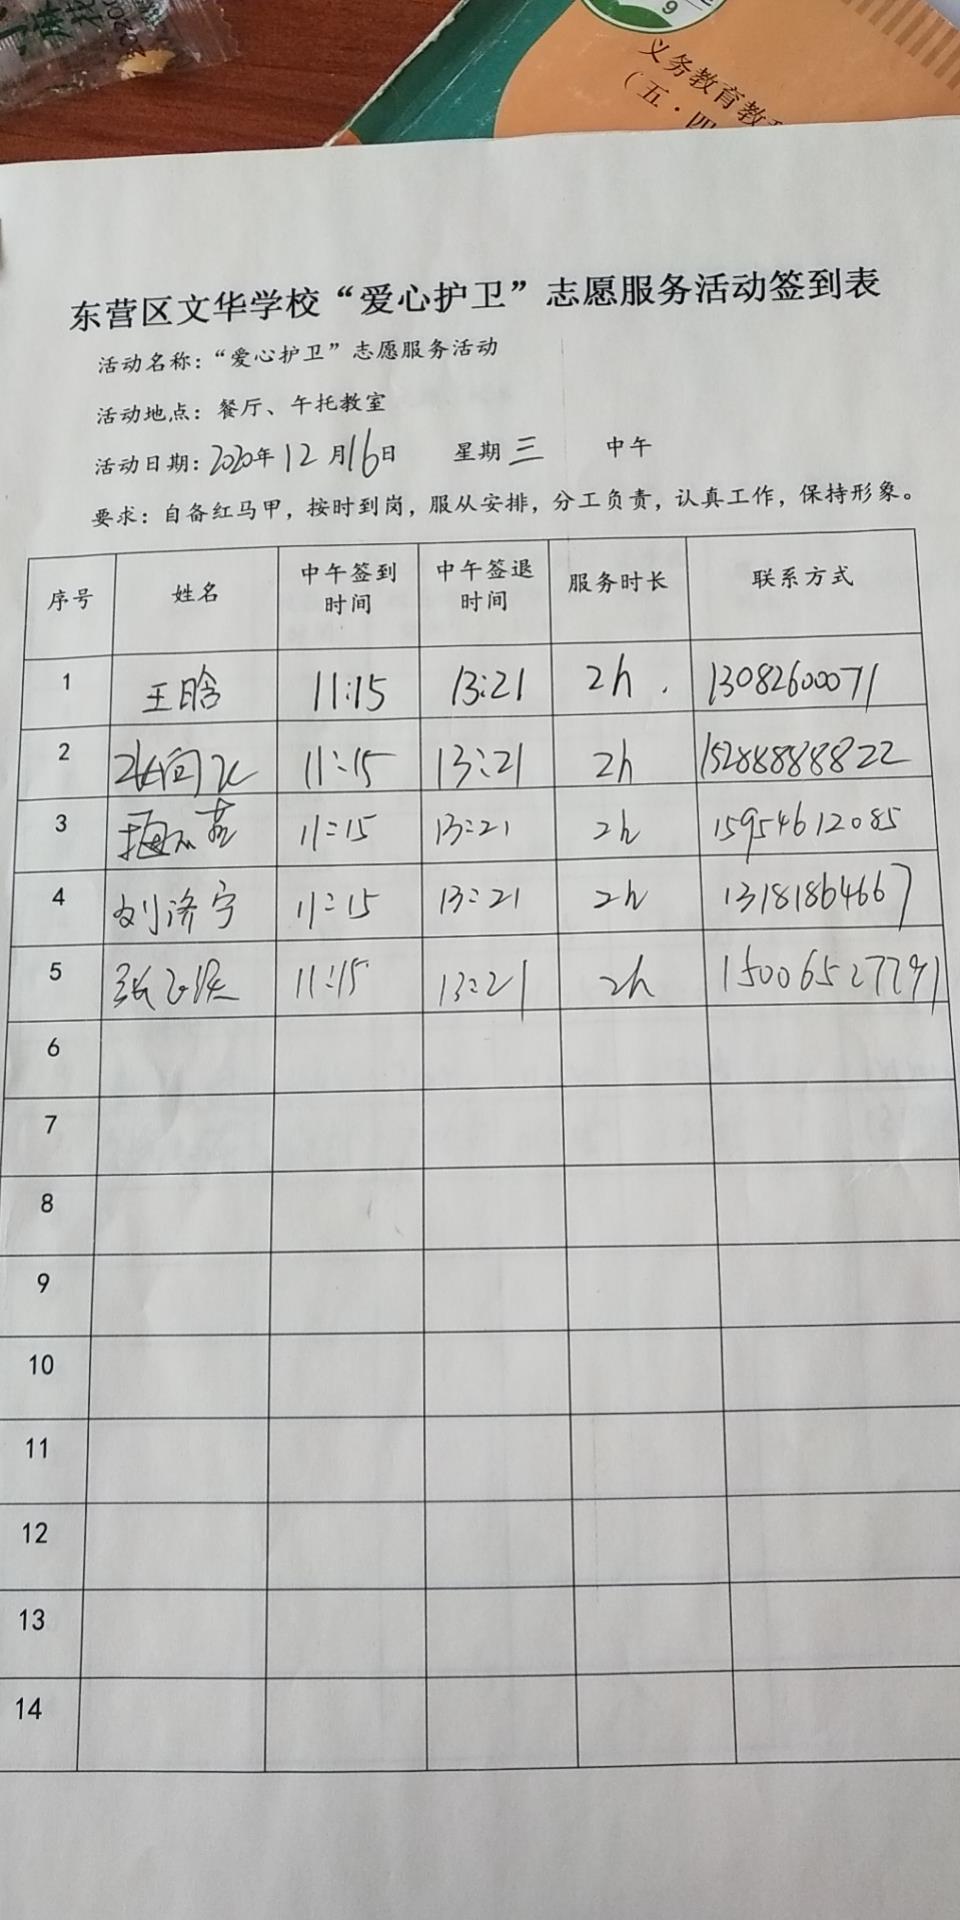 9
义务教育教
(五·四
东营区文华学校“爱心护卫”志愿服务活动签到表
活动名称:“爱心护卫”志愿服务活动
活动地点:餐厅、午托教室
活动日期:2020年12月16日 星期三 中午
要求:自备红马甲,按时到岗,服从安排,分工负责,认真工作,保持形象。
序号 姓名 中午签到时间 中午签退时间 服务时长 联系方式
1 王晗 11:15 13:21 2h. 13082600071
2 11:15 13:21 2h 15288888822
3 11:15 13:21 2h 15954612085
4 刘济宁 11:15 13:21 2h 13181864667
5 11:15 13:21 2h 15006527791
6
7
8
9
10
11
12
13
14